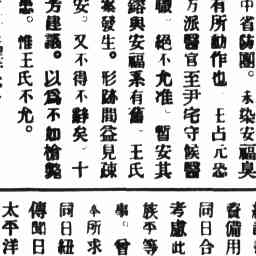 中省防團。未染安福臭
有所動作也 王占元恐
方派醫官至尹宅守候醫
職 絕不允准 暫安其
與安福系有舊 王氏
案發生。形跡間益見疎
安。又不得不辭矣。十
芳建議。以爲不如槍斃
惟王氏不允。
備用
同日合
考慮此
族平等
舉。曾
今所求
同日紐
傳聞日
太平洋